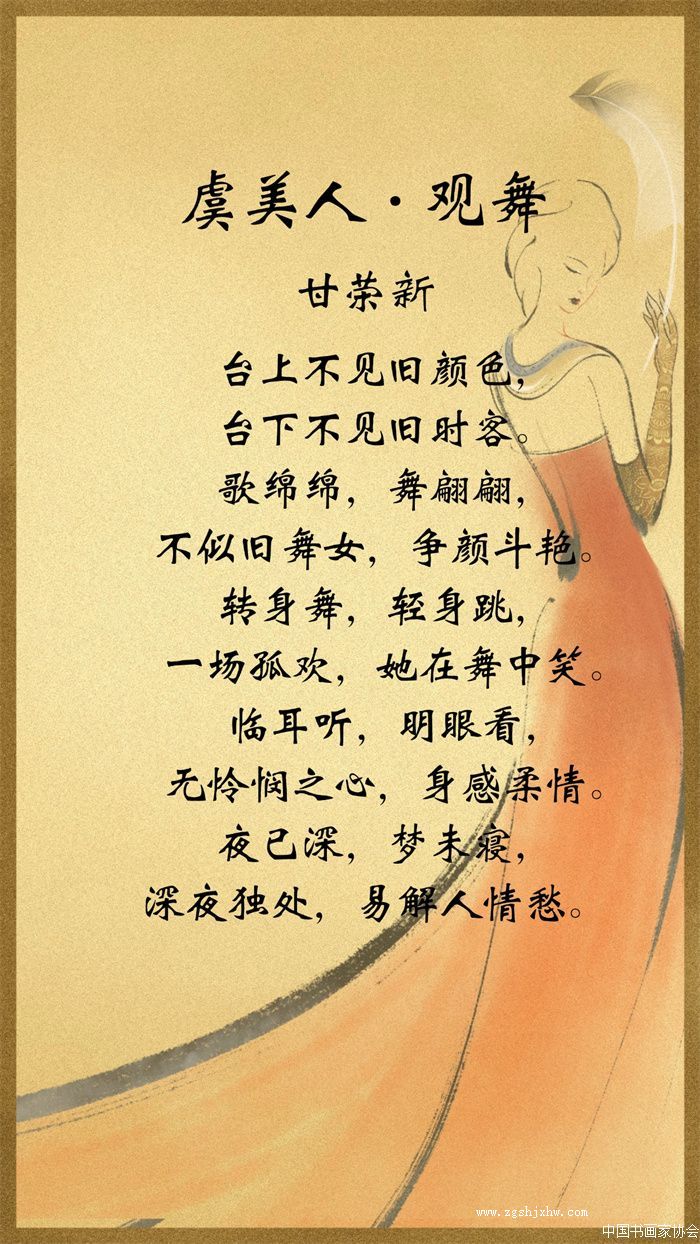 虞美人·观舞
甘荣新
台上不见旧颜色，
台下不见旧时客。
歌绵绵，舞翩翩，
不似旧舞女，争颜斗艳。
转身舞，轻身跳，
一场孤欢，她在舞中笑。
临耳听，明眼看，
无怜悯之心，身感柔情。
夜已深，梦未寝，
深夜独处，易解人情愁。
www.zgshjxhw.com
中国书画家协会